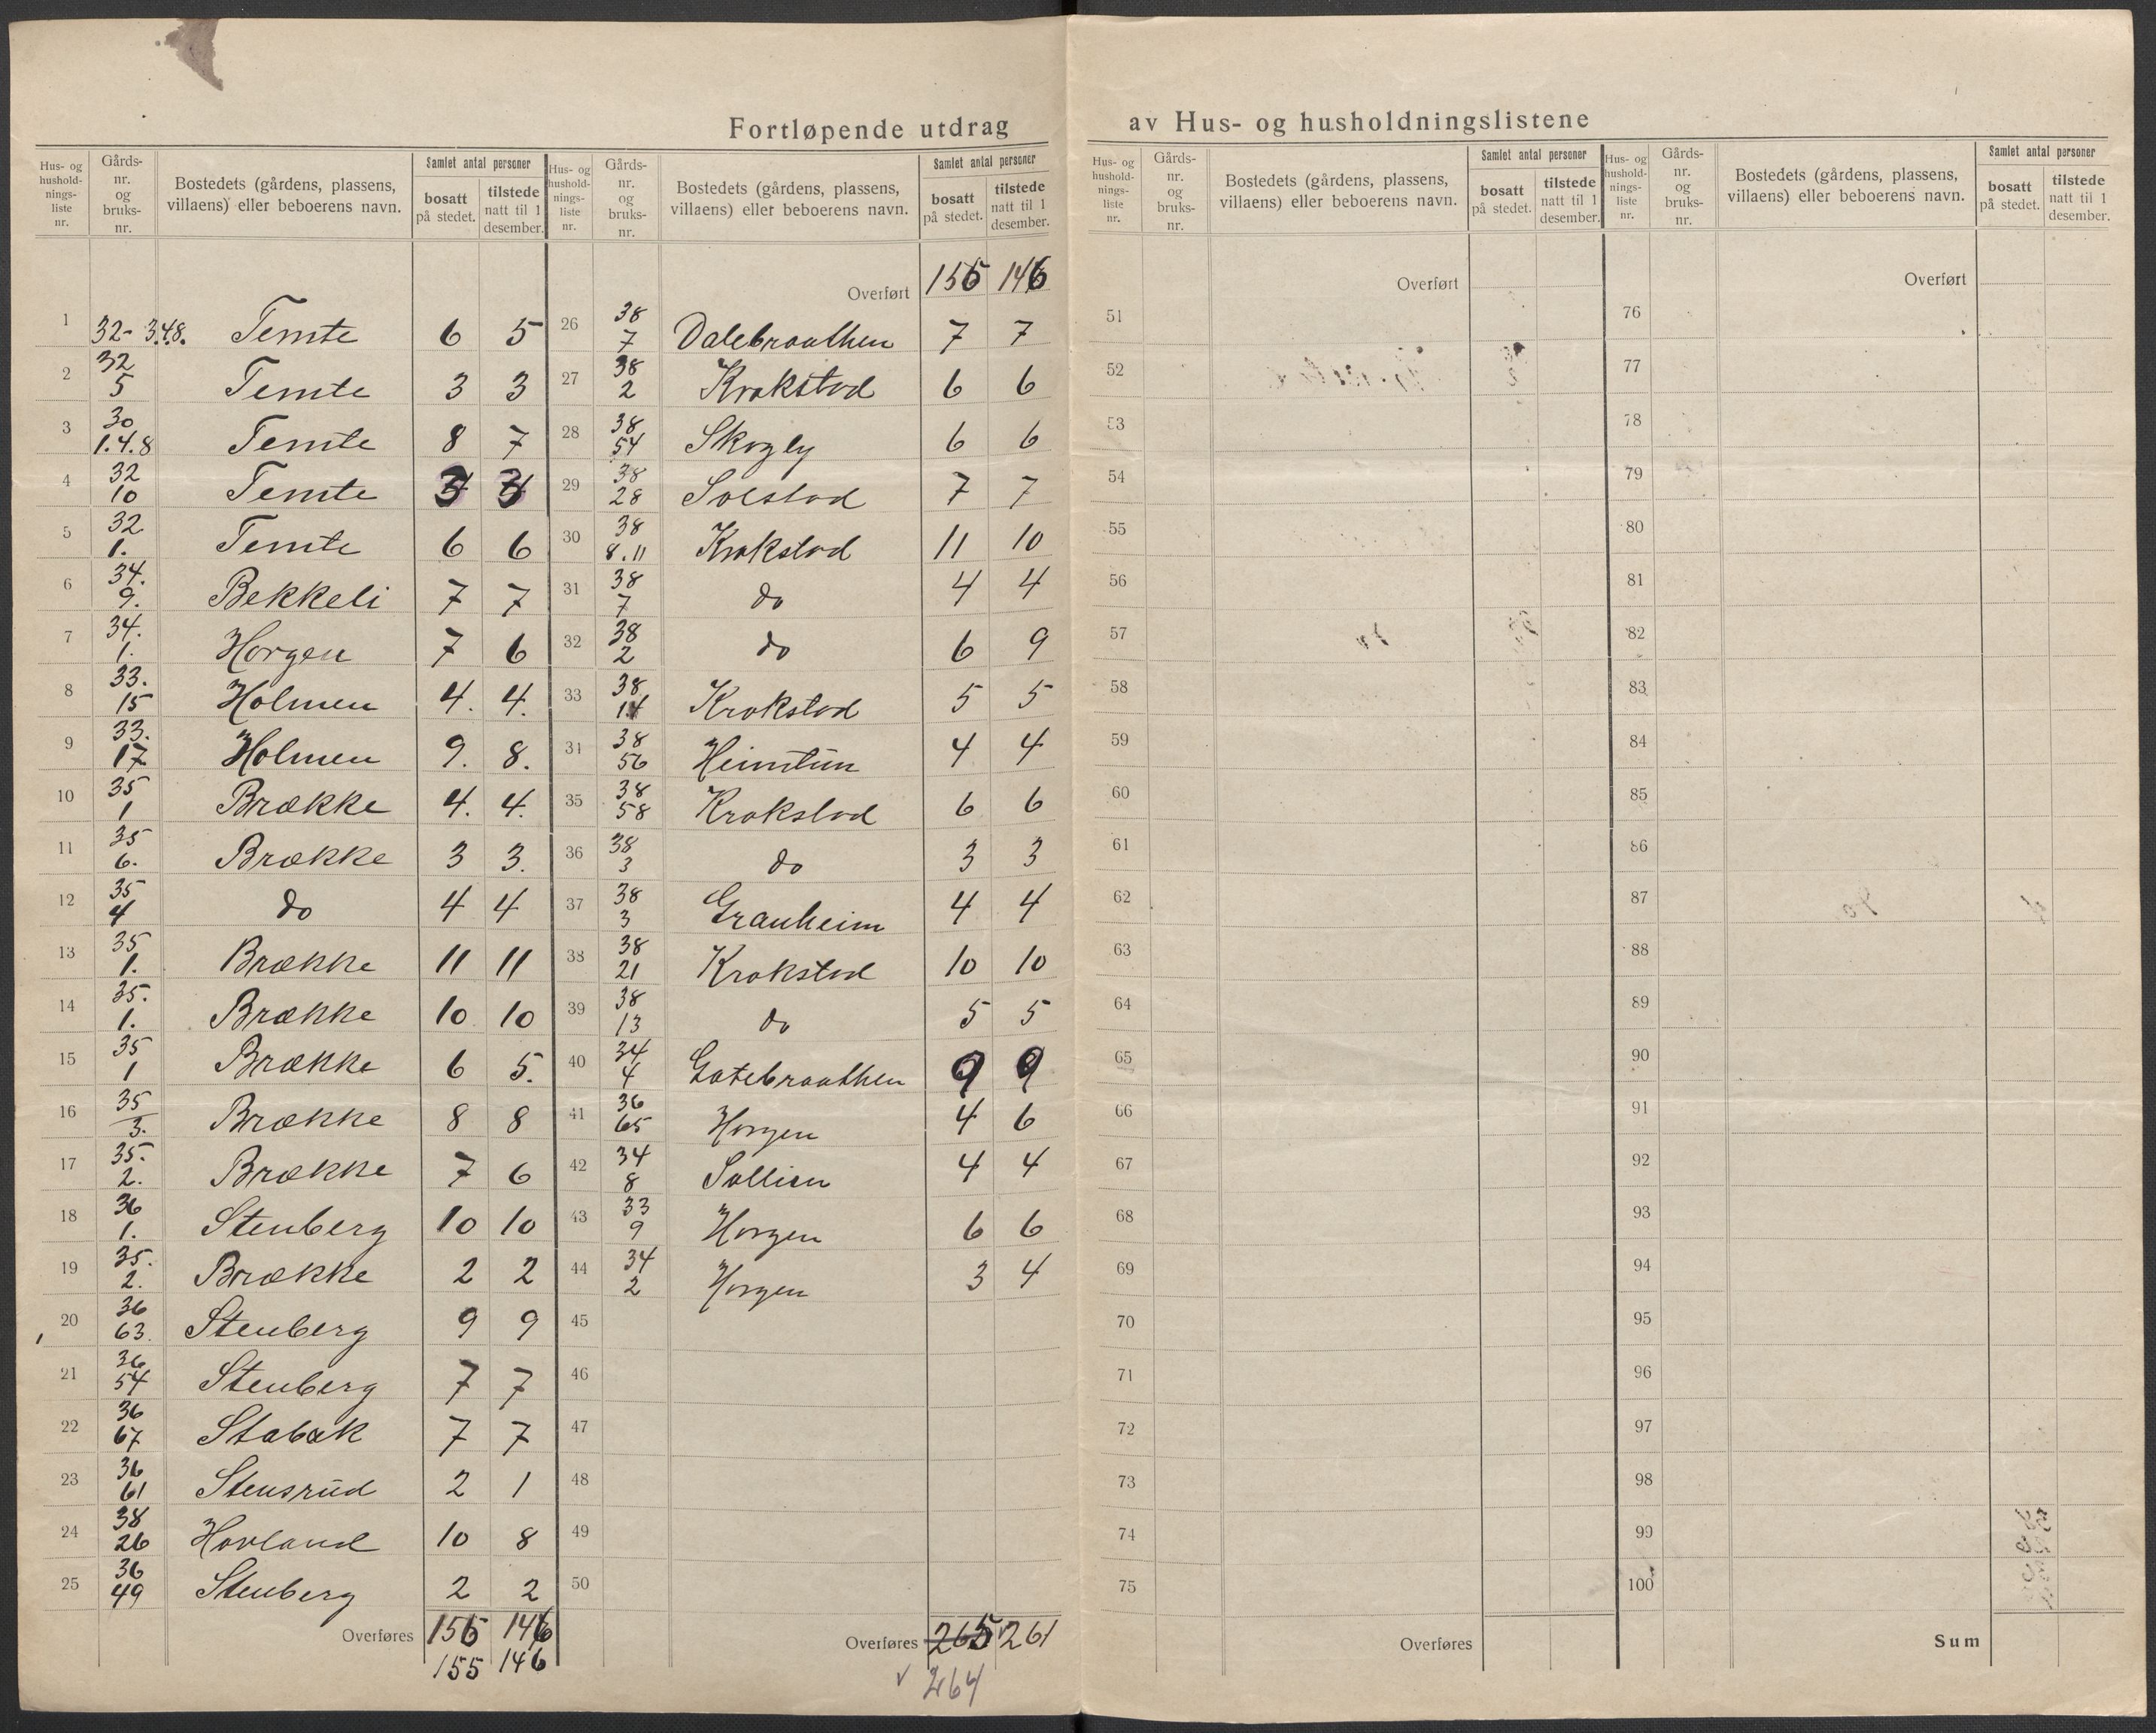 Fortløpende utdrag av Hus- og husholdningslistene
Hus- og hushold-nings-liste nr. | Gårds-nr. og bruks-nr. | Bostedets (gårdens, plassens, villaens) eller beboerens navn. | Samlet antal personer bosatt på stedet. | tilstede natt til 1 desember.
1 32-3.4.8. Temte 6 5
2 32 5 Temte 3 3
3 30 1.4.8 Temte 8 7
4 32 10 Temte 3 3
5 32 1. Temte 6 6
6 34. 9. Bekkeli 7 7
7 34. 1. Horgen 7 6
8 33. 15 Holmen 4. 4.
9 33. 17 Holmen 9. 8.
10 35 1 Brække 4. 4.
11 35 6. Brække 3 3.
12 35 4 do 4 4
13 35 1. Brække 11 11
14 35. 1. Brække 10 10
15 35 1 Brække 6 5.
16 35 3. Brække 8 8
17 35. 2. Brække 7 6
18 36 1. Stenberg 10 10
19 35. 2. Brække 2 2
20 36 63. Stenberg 9 9
21 36 54 Stenberg 7 7
22 36 67 Stabæk 7 7
23 36 61 Stensrud 2 1
24 38 26 Hovland 10 8
25 36 49 Stenberg 2 2
Overføres 155 146
155 146
Hus- og hushold-nings-liste nr. | Gårds-nr. og bruks-nr. | Bostedets (gårdens, plassens, villaens) eller beboerens navn. | Samlet antal personer bosatt på stedet. | tilstede natt til 1 desember.
Overført 155 146
26 38 7 Dalebraathen 7 7
27 38 2 Krokstad 6 6
28 38 54 Skogly 6 6
29 38 28 Solstad 7 7
30 38 8.11 Krokstad 11 10
31 38 7 do 4 4
32 38 2 do 6 9
33 38 14 Krokstad 5 5
34 38 56 Heimtun 4 4
35 38 58 Krokstad 6 6
36 38 3 do 3 3
37 38 3 Granheim 4 4
38 38 21 Krokstad 10 10
39 38 13 do 5 5
40 34 4 Gatebraathen 9 9
41 36 65 Horgen 4 6
42 34 8 Sollien 4 4
43 33 9 Horgen 6 6
44 34 2 Horgen 3 4
45
46
47
48
49
50
Overføres 265 261
264
Hus- og hushold-nings-liste nr. | Gårds-nr. og bruks-nr. | Bostedets (gårdens, plassens, villaens) eller beboerens navn. | Samlet antal personer bosatt på stedet. | tilstede natt til 1 desember.
Overført
51
52
53
54
55
56
57
58
59
60
61
62
63
64
65
66
67
68
69
70
71
72
73
74
75
Overføres
Hus- og hushold-nings-liste nr. | Gårds-nr. og bruks-nr. | Bostedets (gårdens, plassens, villaens) eller beboerens navn. | Samlet antal personer bosatt på stedet. | tilstede natt til 1 desember.
Overført
76
77
78
79
80
81
82
83
84
85
86
87
88
89
90
91
92
93
94
95
96
97
98
99
100
Sum